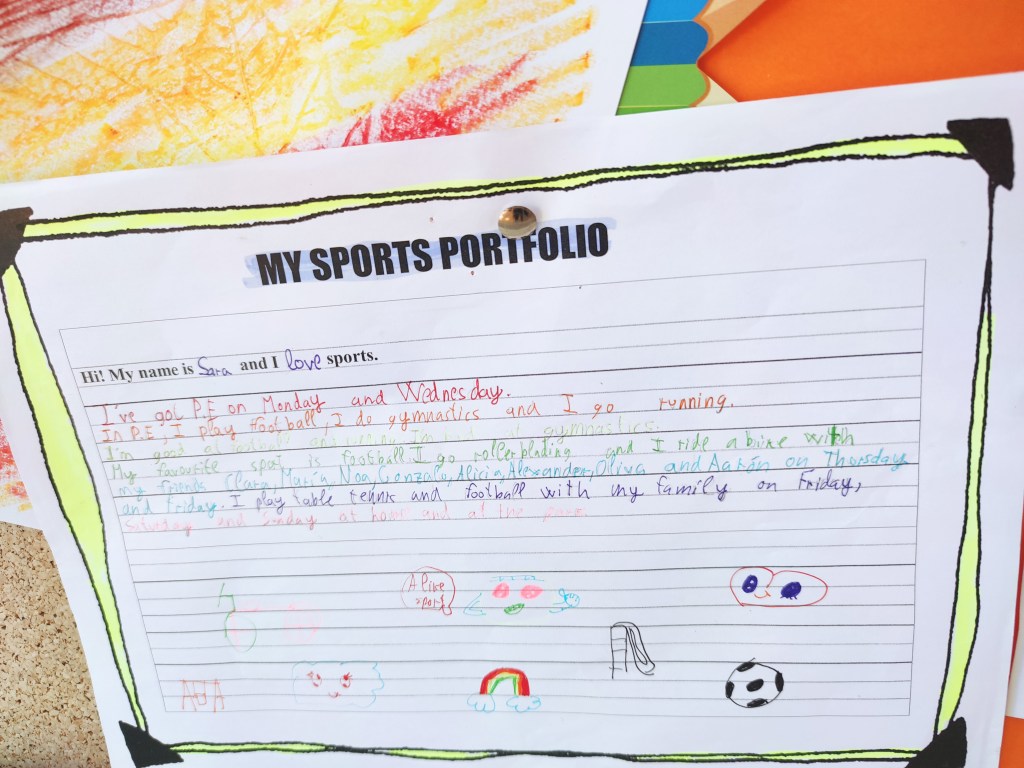 MY SPORTS PORTFOLIO
Hi! My name is Sara and I love sports.
I've got P.E on Monday and Wednesday.
In P.E, I play football, I do gymnastics and I go running.
I'm good at football and running. I'm at gymnastics.
My favourite sport is football. I go rollerblading and I ride a bike with
my friends Clara, María, Noa, Gonzalo, Alicia, Alexander, Oliva and Aarón on Thursday
and Friday. I play table tennis and football with my family on Friday,
Saturday and Sunday at home and at the
A like
sport